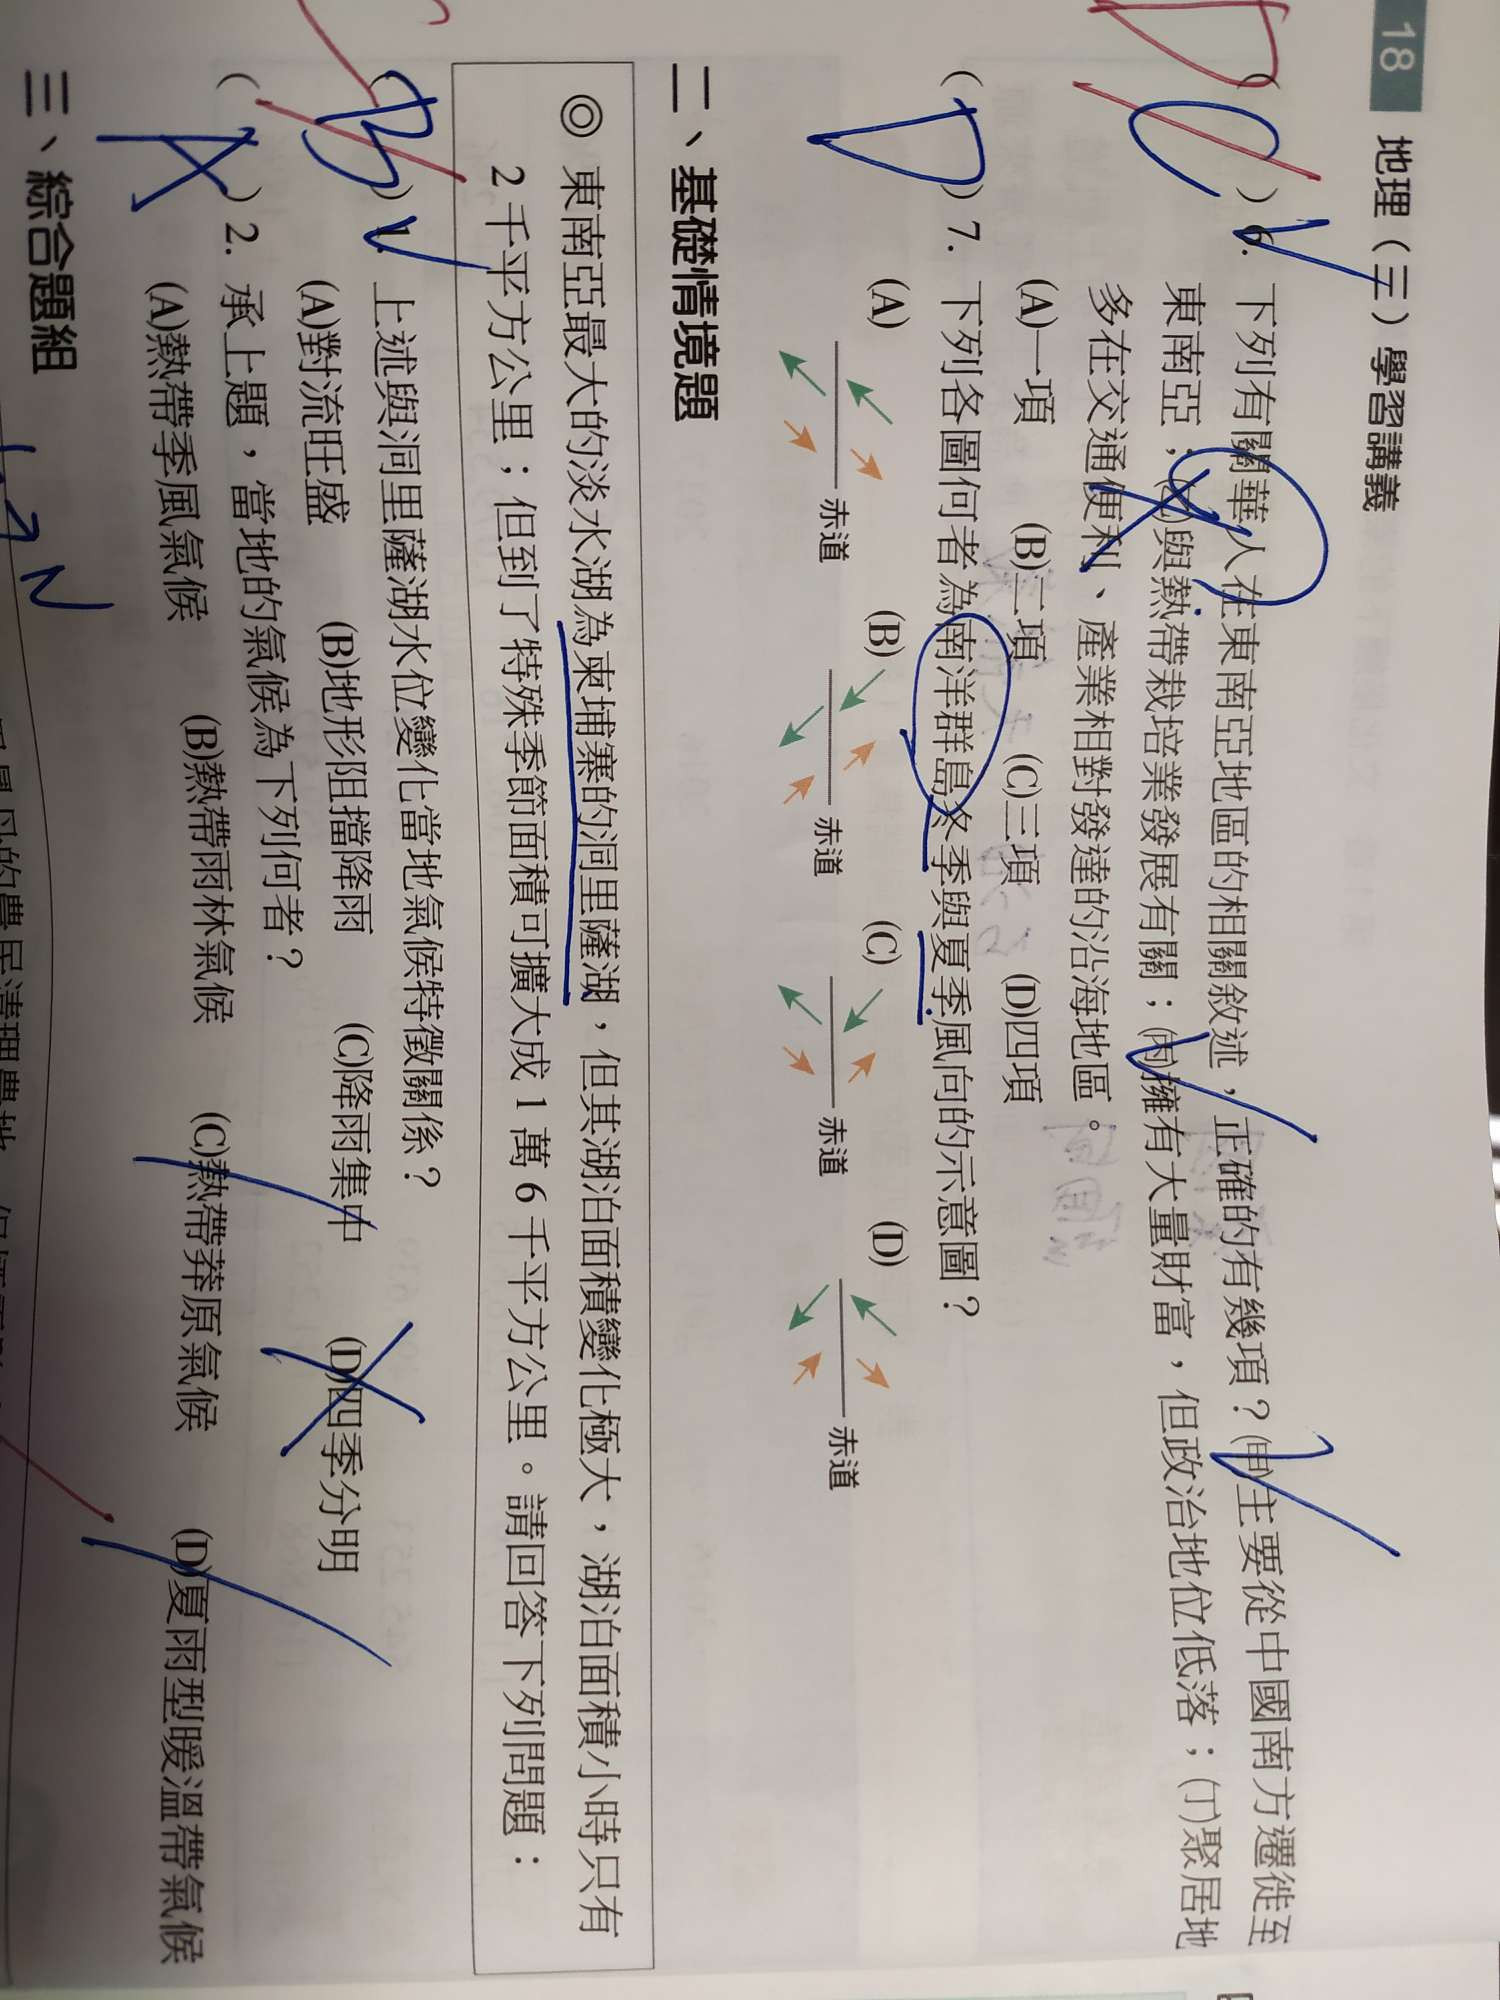 18 地理(三)學習講義
D
C
( ) 6. 下列有關華人在東南亞地區的相關敘述,正確的有幾項?(甲)主要從中國南方遷徙至
東南亞;(乙)與熱帶栽培業發展有關;(丙)擁有大量財富,但政治地位低落;(丁)聚居地
多在交通便利、產業相對發達的沿海地區。
(A)一項 (B)二項 (C)三項 (D)四項
D
( ) 7. 下列各圖何者為南洋群島冬季與夏季風向的示意圖?
(A) (B) (C) (D)
赤道 赤道 赤道 赤道
二、基礎情境題
◎ 東南亞最大的淡水湖為柬埔寨的洞里薩湖,但其湖泊面積變化極大,湖泊面積小時只有
2 千平方公里;但到了特殊季節面積可擴大成 1 萬 6 千平方公里。請回答下列問題:
C
B
( ) 1. 上述與洞里薩湖水位變化當地氣候特徵關係?
(A)對流旺盛 (B)地形阻擋降雨 (C)降雨集中 (D)四季分明
A
( ) 2. 承上題,當地的氣候為下列何者?
(A)熱帶季風氣候 (B)熱帶雨林氣候 (C)熱帶莽原氣候 (D)夏雨型暖溫帶氣候
三、綜合題組